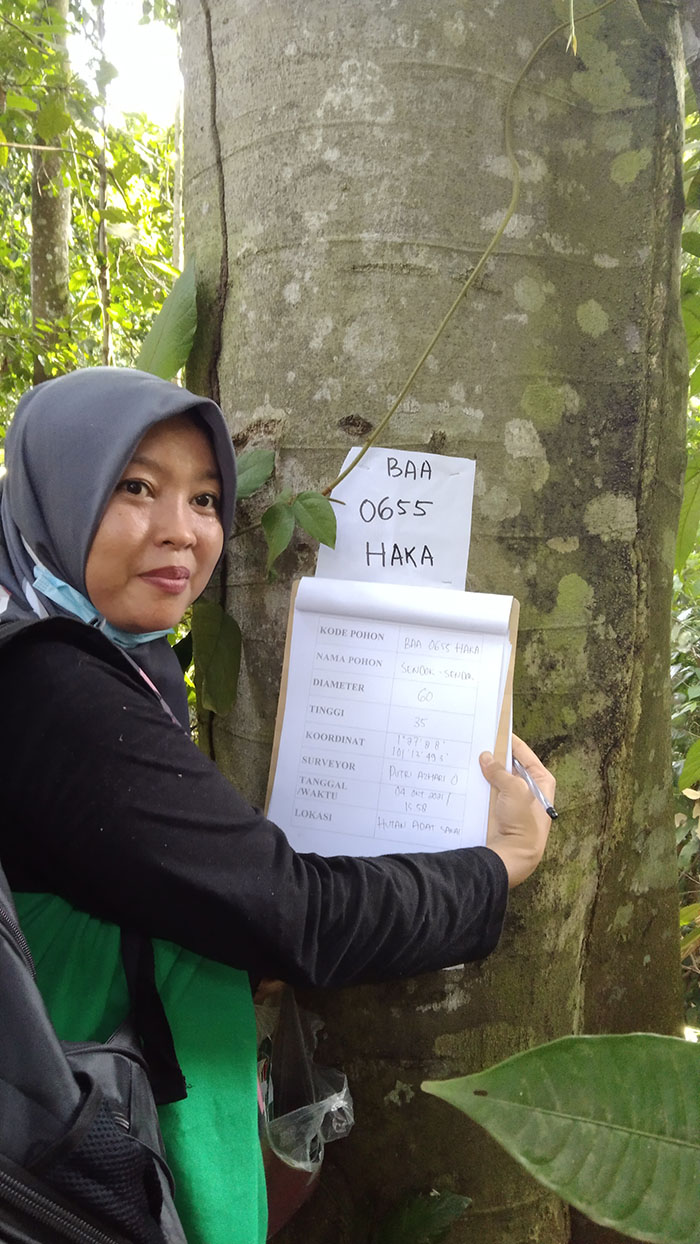 BAA
0655
HAKA
KODE POHON BAA 0655 HAKA
NAMA POHON SENDOK-SENDOK
DIAMETER 60
TINGGI 35
KOORDINAT 1°27'8'8"
101°13'49.3"
SURVEYOR PUTRI ASHARI O
TANGGAL 04 OKT 2021/
/WAKTU 15.58
LOKASI HUTAN ADAT